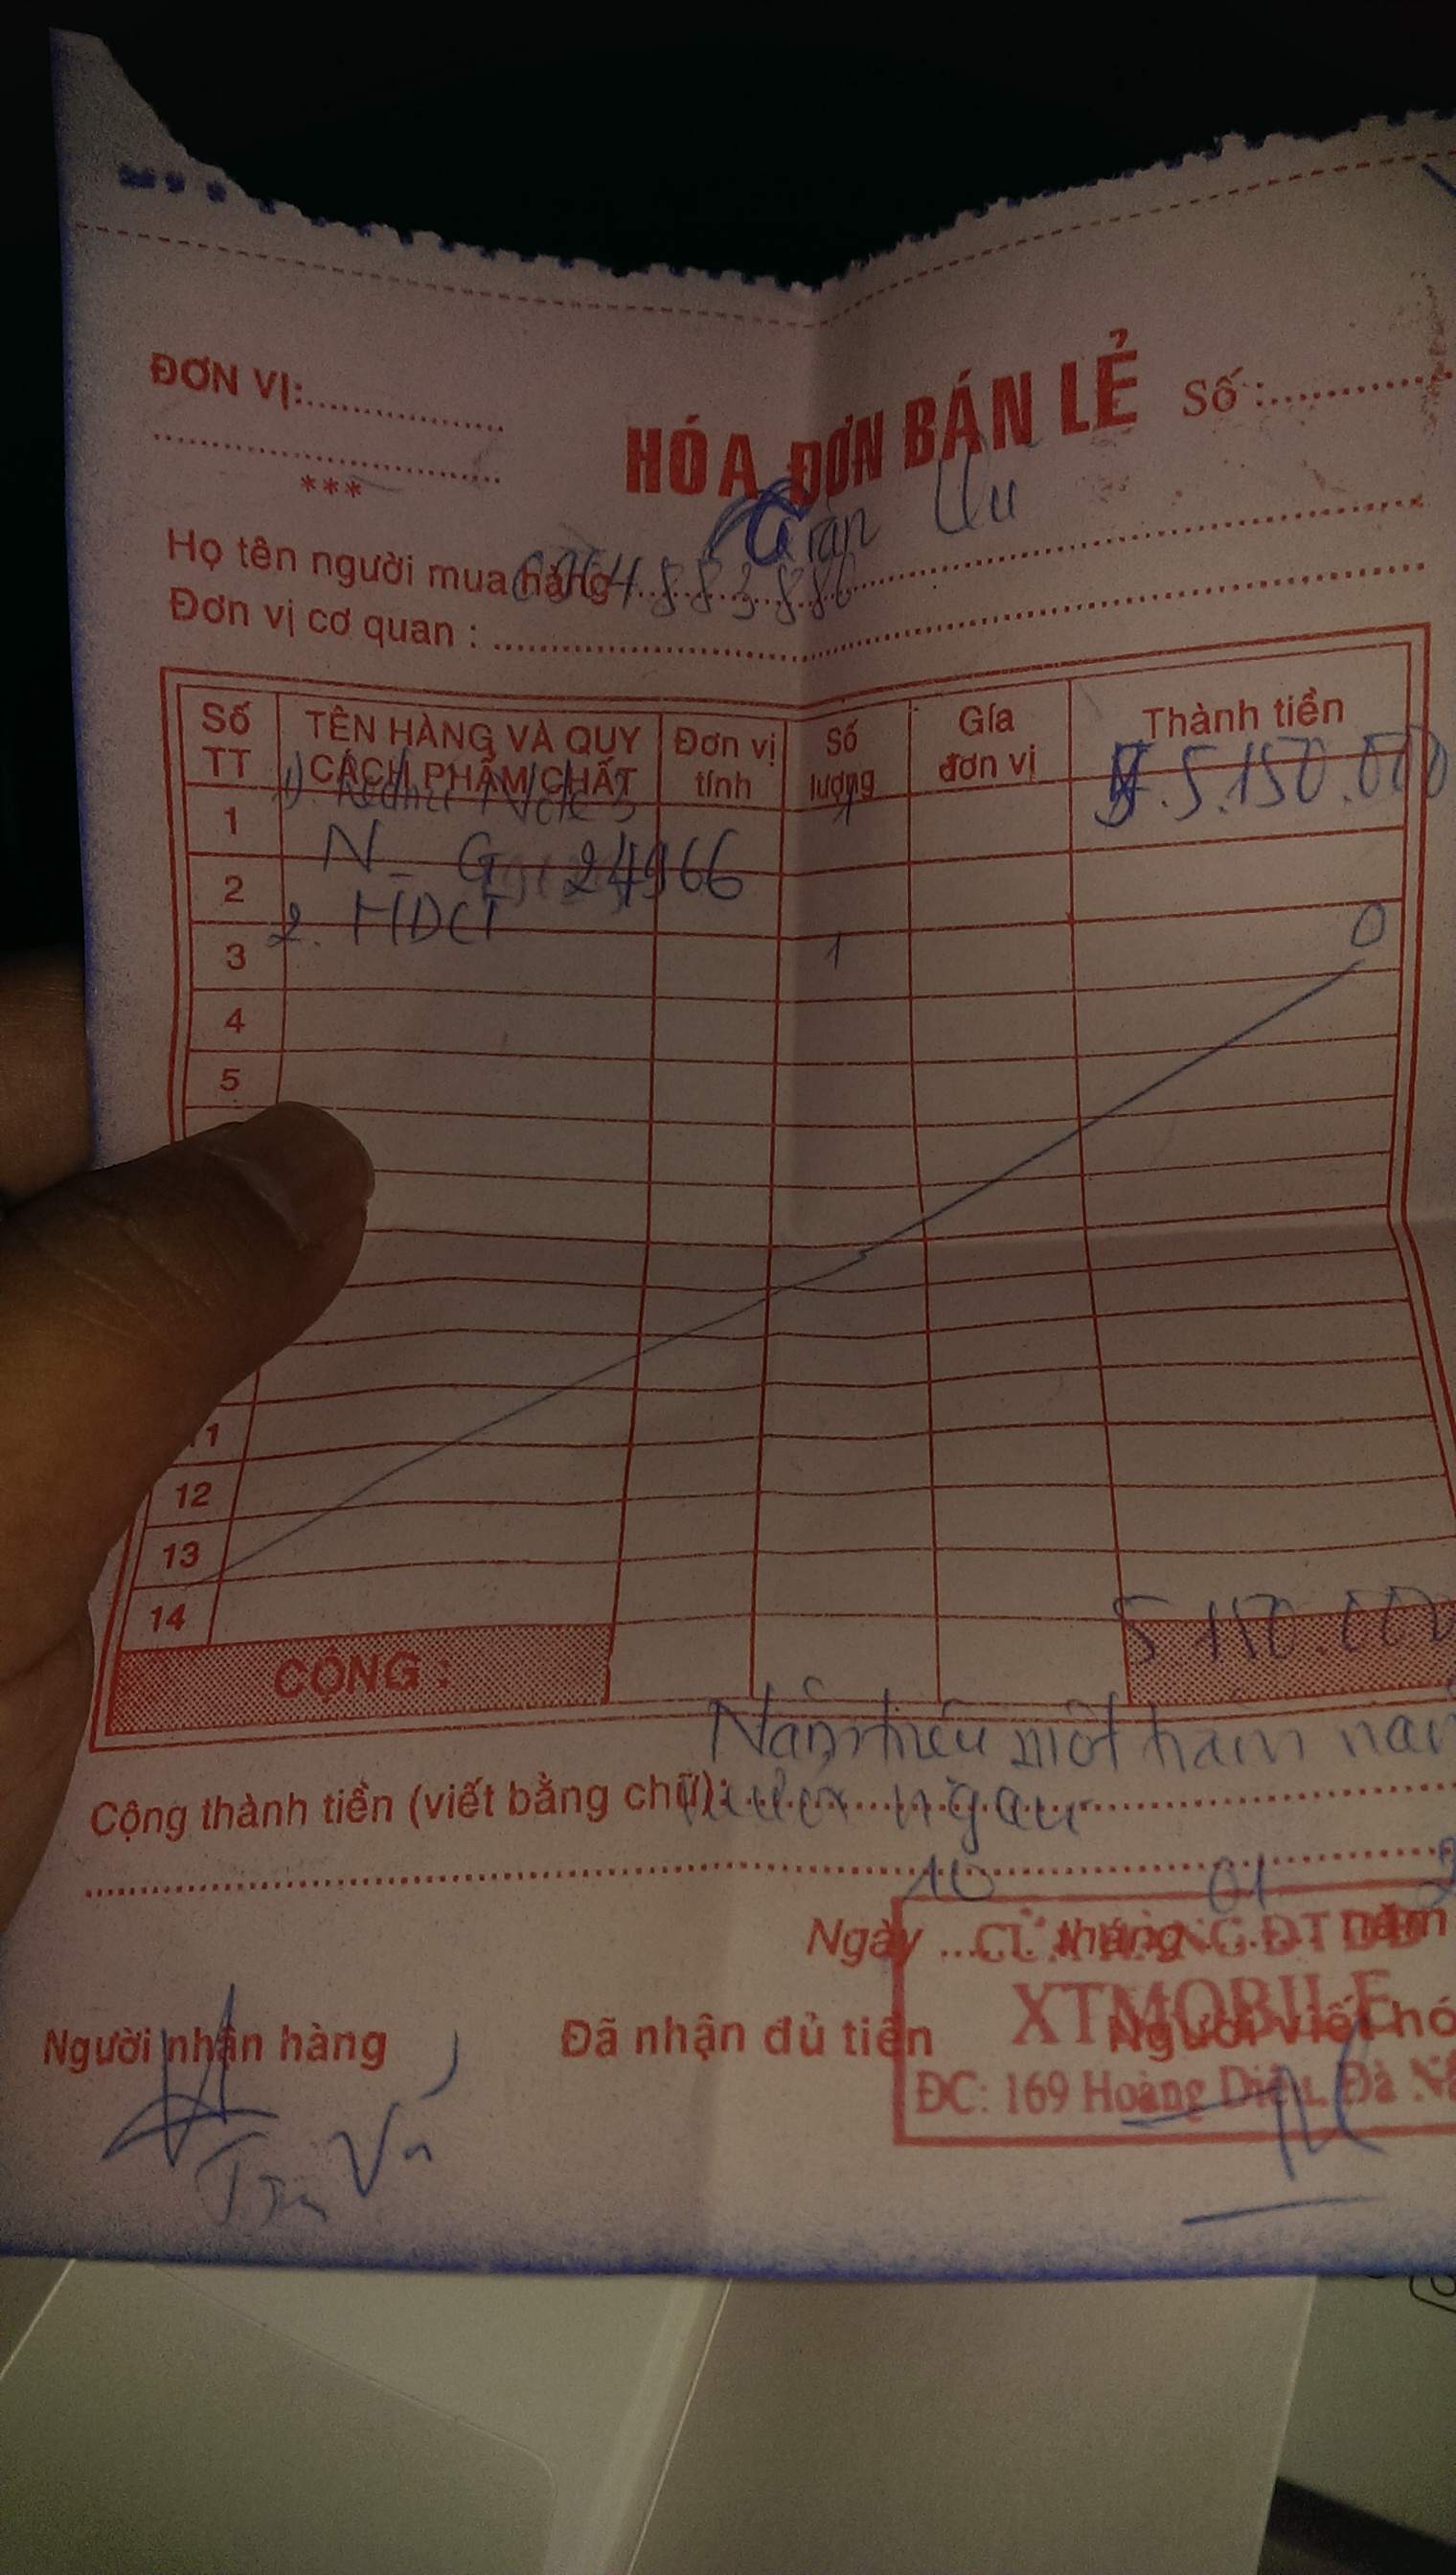 ĐƠN VỊ:
HÓA ĐƠN BÁN LẺ Số :
***
Trần Vũ
Họ tên người mua hàng
Đơn vị cơ quan :
Số TT TÊN HÀNG VÀ QUY CÁCH PHẨM CHẤT Đơn vị tính Số lượng Gía đơn vị Thành tiền
1 1) Redmi Note 3 1 5.150.000
2 N_ G 24966
3 2. HDCT 1 0
4
5
12
13
14
CỘNG : 5.150.000
Năm triệu một trăm năm
Cộng thành tiền (viết bằng chữ): mươi ngàn
Ngày 10 tháng 01 năm
CỬA HÀNG ĐTDĐ
XTMOBILE
ĐC: 169 Hoàng Diệu, Đà
Người nhận hàng Đã nhận đủ tiền Người viết